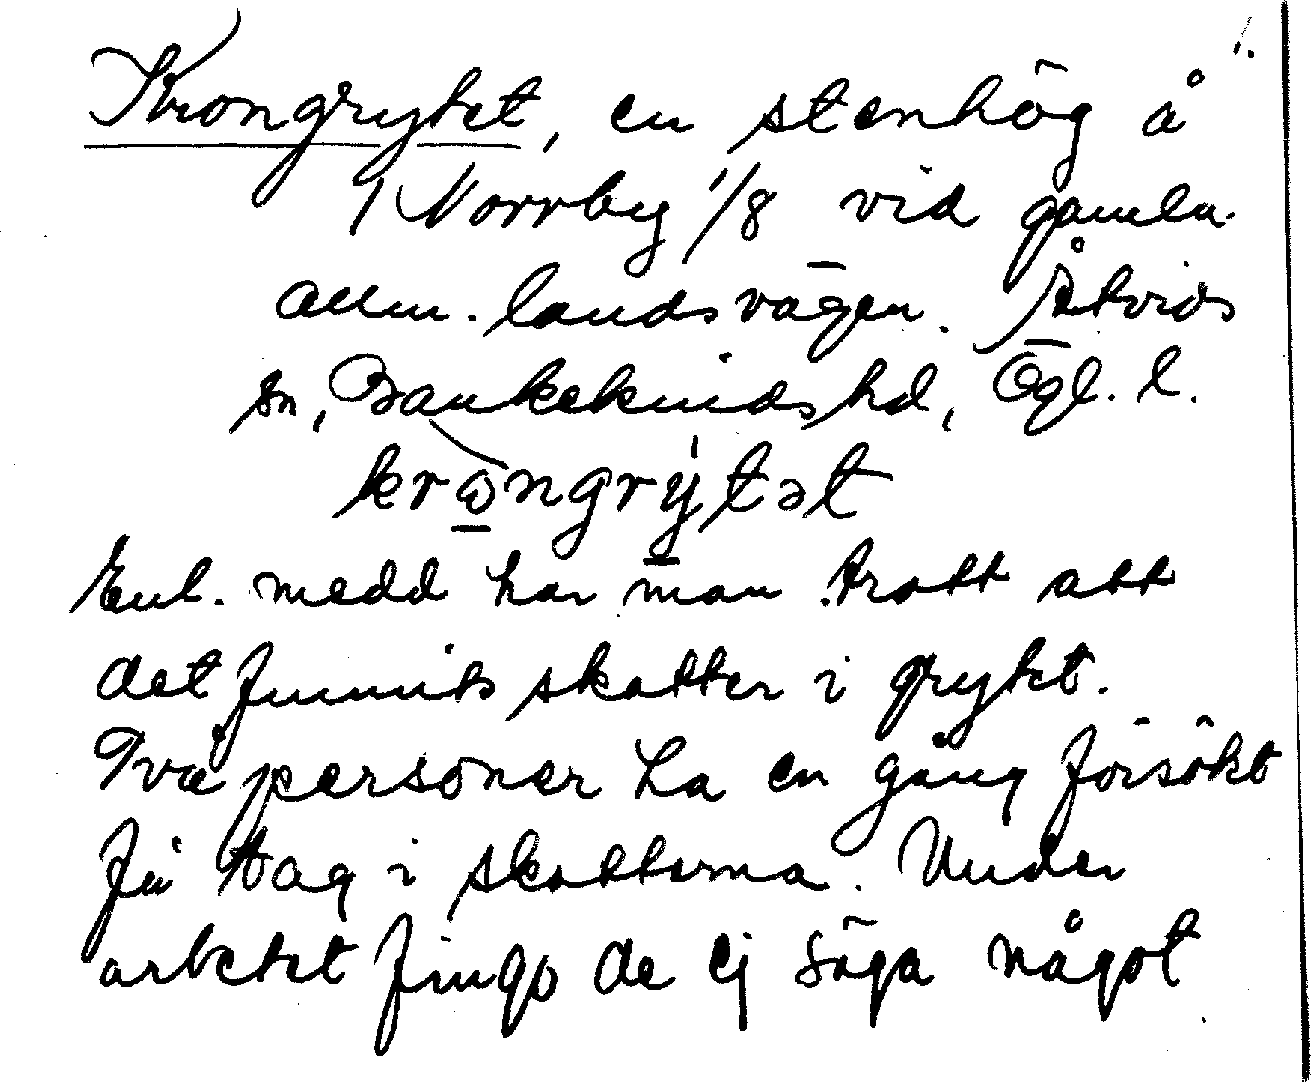 1.
Krongrytet, en stenhög å
1 Norrby 1/8 vid gamla
allm. landsvägen. Åtvids
sn, Bankekinds hd, Ögl. l.
krωngrýtət
Enl. medd har man trott att
det funnits skatter i grytet.
Två personer ha en gång försökt
få tag i skatterna. Under
arbetet fingo de ej säga något